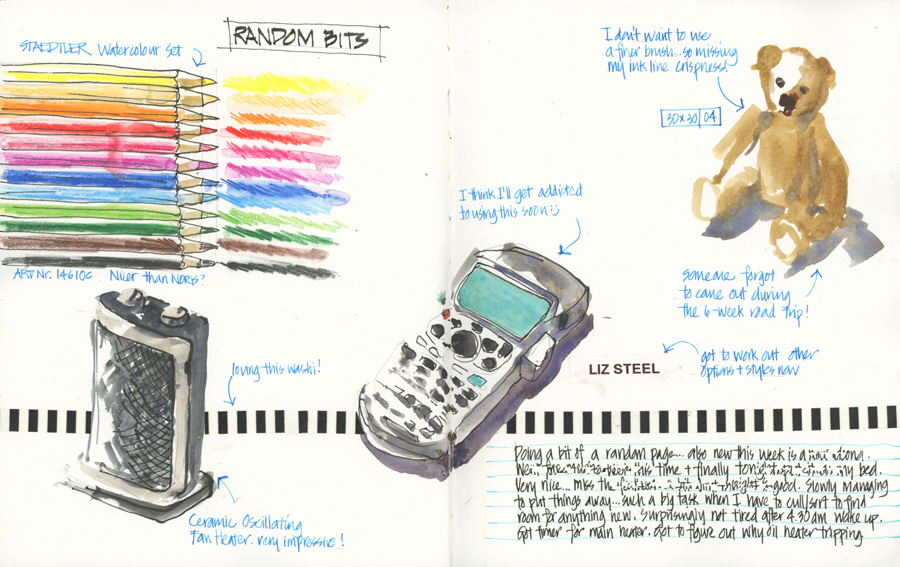 RANDOM BITS
STAEDTLER Watercolour Set
ART Nr. 14610C Nicer than NORIS?
I don't want to use
a finer brush...so missing
my ink line crispness!
30x30 04
I think I'll get addicted
to using this soon
someone forgot
to come out during
the 6-week road trip!
LIZ STEEL
got to work out other
options + styles now
loving this washi!
Ceramic Oscillating
Fan Heater. very impressive!
Doing a bit of a random page... also new this week is a
time + finally my bed.
Very nice... miss the good. Slowly managing
to put things away...such a big task when I have to cull/sort to find
room for anything new. Surprisingly not tired after 4.30am wake up.
Got timer for main heater. Got to figure out why oil heater tripping